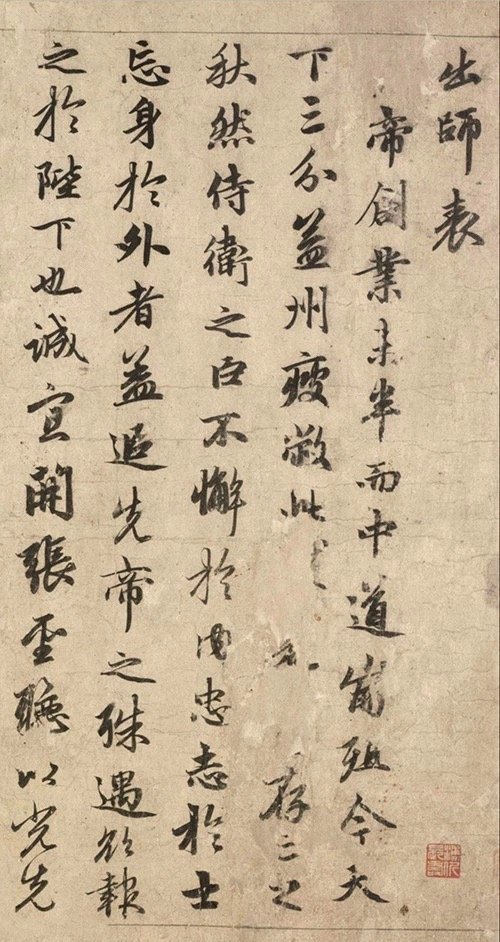 出師表
帝創業未半而中道崩殂今天
下三分益州疲敝此存亡之
秋然侍衛之臣不懈於內忠志於士
忘身於外者蓋追先帝之殊遇欲報
之於陛下也誠宜開張聖聽以光先